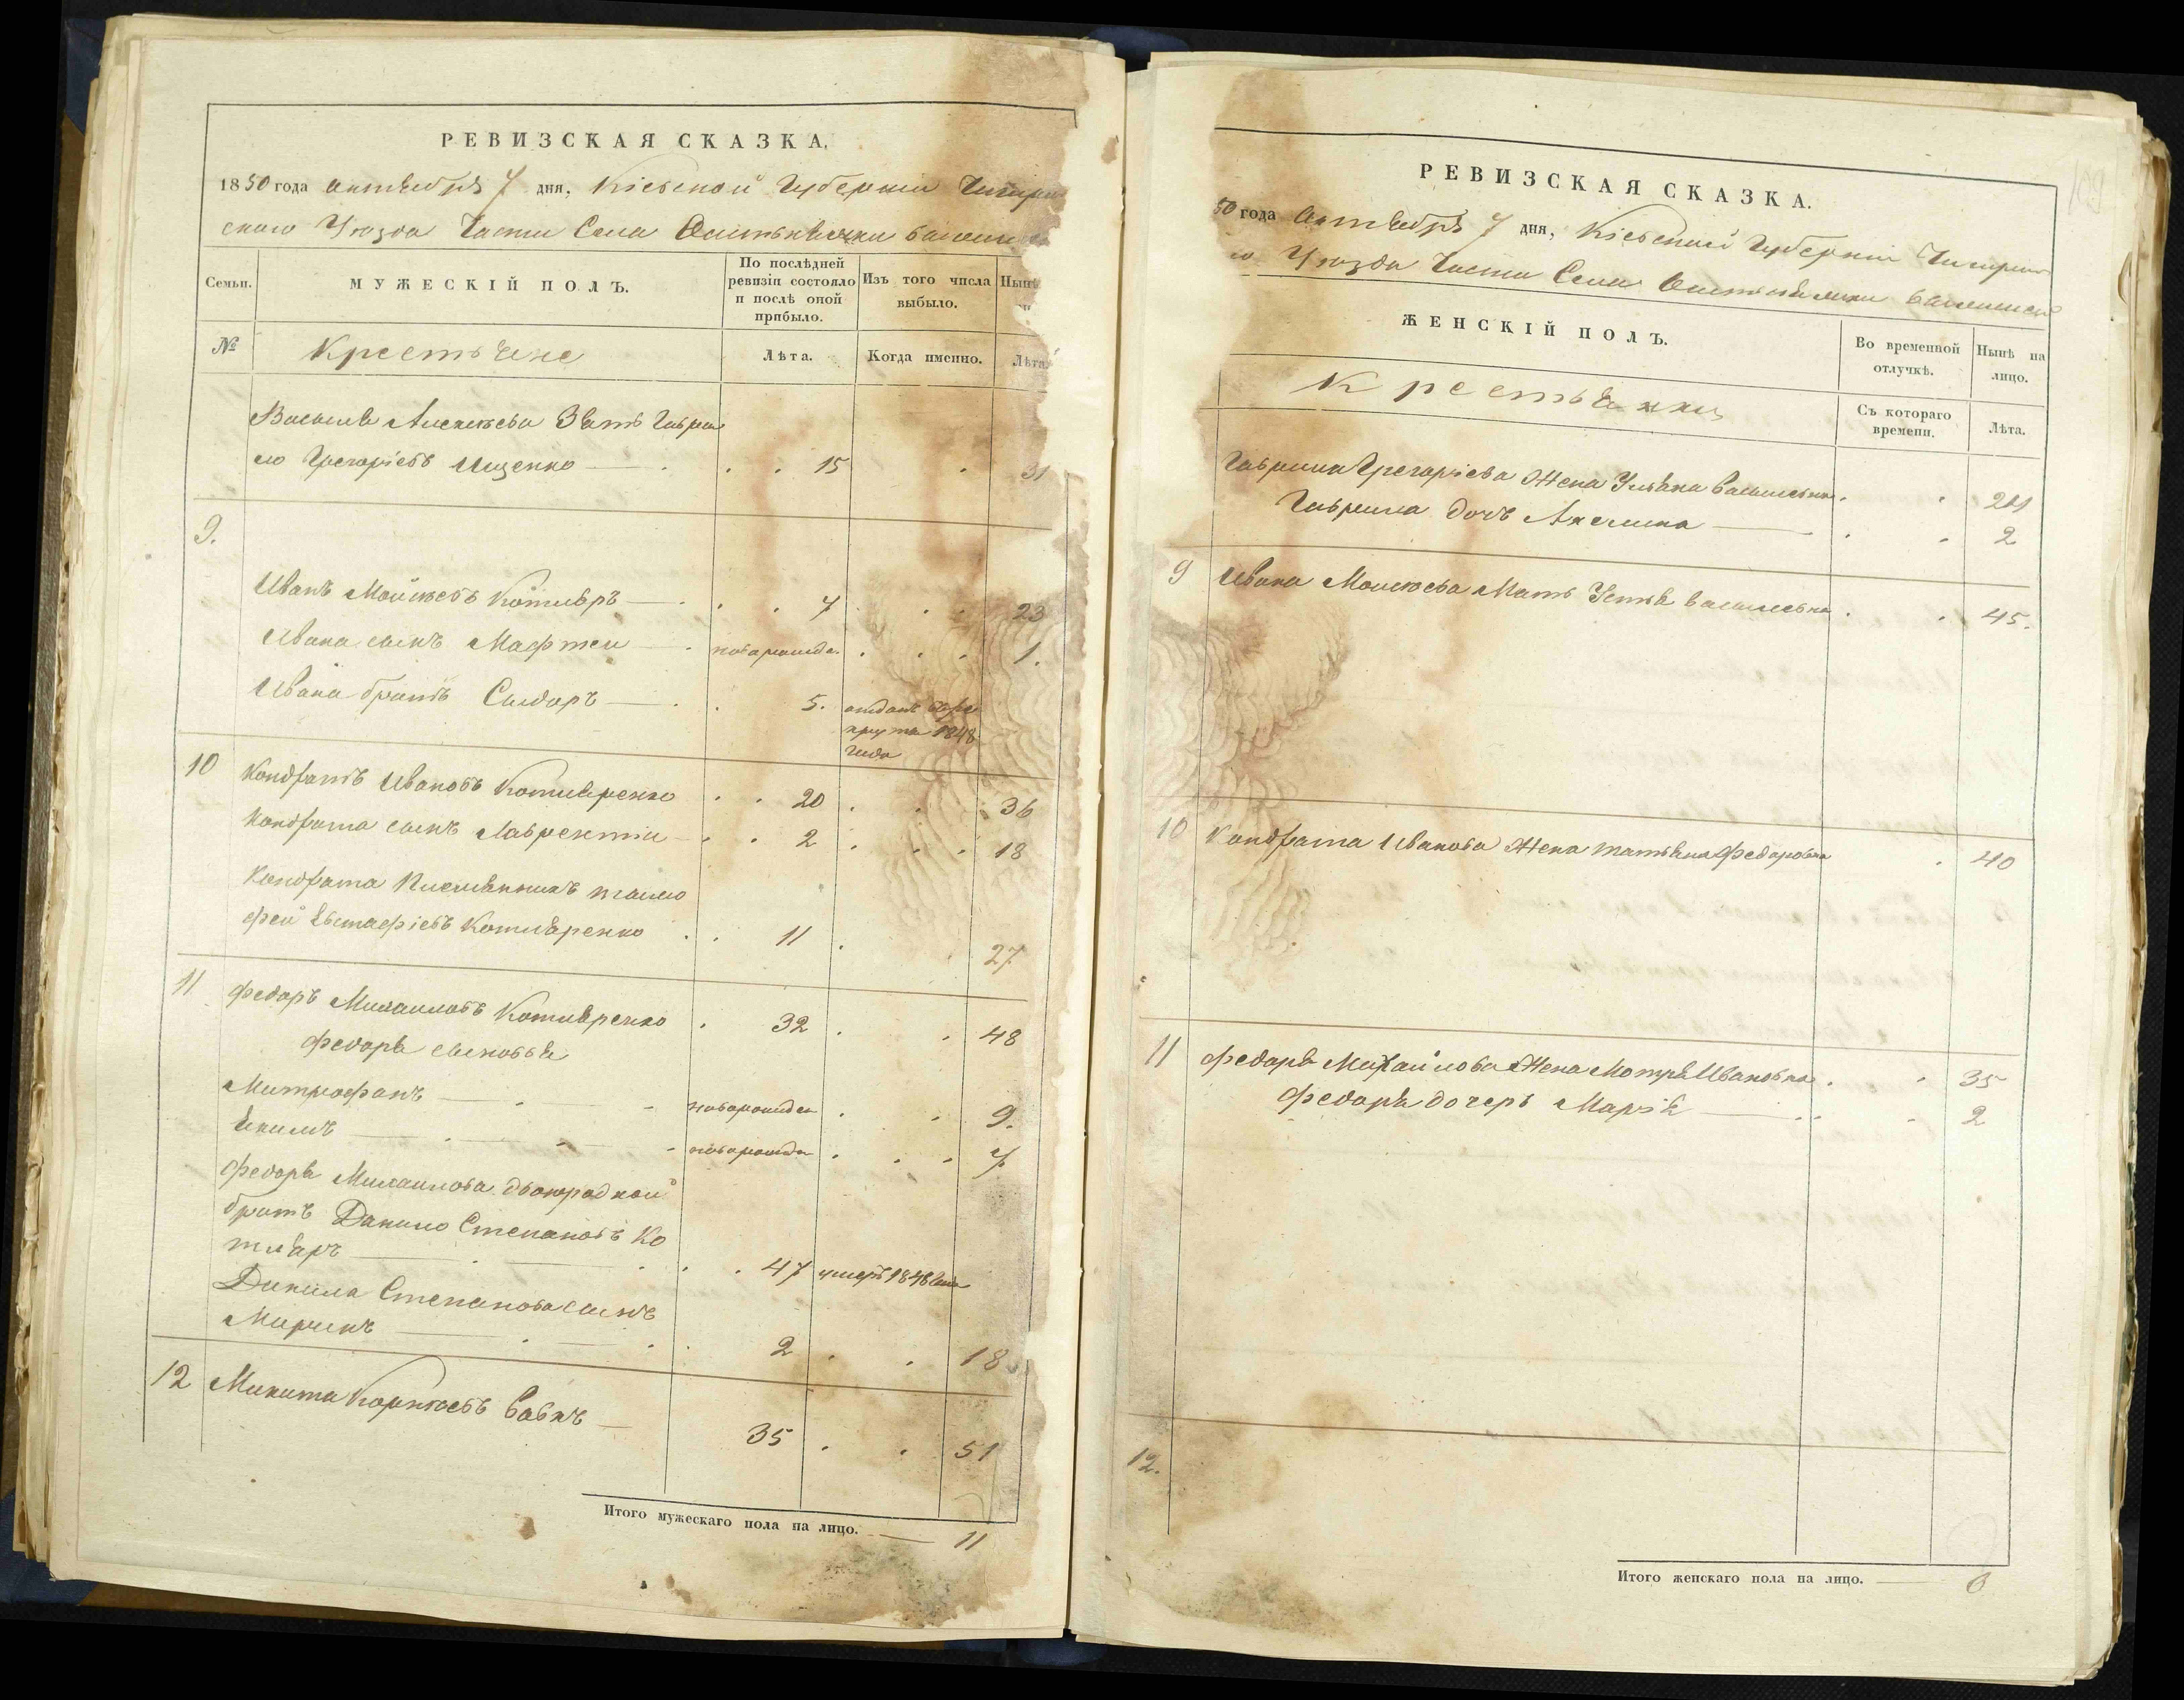 РЕВИЗСКАЯ СКАЗКА.
1850 года Октября 7 дня, Кіевской Губерніи Чигирин
скаго Уезда Части Села
Семьи.
МУЖЕСКІЙ ПОЛЪ.
По послѣдней
ревизіи состояло
и послѣ оной
прибыло.
Изъ того числа
выбыло.
Нынѣ
№
Крестьяне
Лѣта.
Когда именно.
Лѣта
Василя Алексѣева Зять Гаври
ло Григоріевъ Ищенко 15 31
9.
Иванъ Мойсѣевъ Котляръ 7 23
Ивана сынъ Мафтеи новорожде. 1.
Ивана братъ Сидоръ 5. отданъ въ ре
круты 1848
года
10 Кондратъ Ивановъ Котляренко 20 36
Кондрата сынъ Лаврентіи 2 18
Кондрата Племянникъ тимо
фей Евстафіевъ Котляренко 11 27
11 Федоръ Михаиловъ Котляренко 32 48
Федора сыновья
Митрофанъ новорожден 9.
Якимъ новорожден 7.
Федора Михаилова двоюродной
братъ Данило Степановъ Ко
тляръ 47 умеръ 1848 года
Данила Степанова сынъ
Миринъ 2 18
12 Микита Корнѣевъ Вовкъ 35 51
Итого мужескаго пола на лицо. 11
РЕВИЗСКАЯ СКАЗКА.
50 года Октября 7 дня, Кіевской Губерніи Чигирин
го Уезда Части Села
ЖЕНСКІЙ ПОЛЪ.
Во временной
отлучкѣ.
Нынѣ на
лицо.
Крестьянки
Съ котораго
времени.
Лѣта.
Гаврила Григоріева Жена Ульяна Васильевна 24
Гаврила дочъ Акелина 2
9 Ивана Моисѣева Мать Устья Васильевна 45.
10 Кондрата Иванова Жена татьяна Федоровна 40
11 Федора Михайлова Жена Мотря Ивановна 35
Федора дочерь Марія 2
12.
Итого женскаго пола на лицо. 6